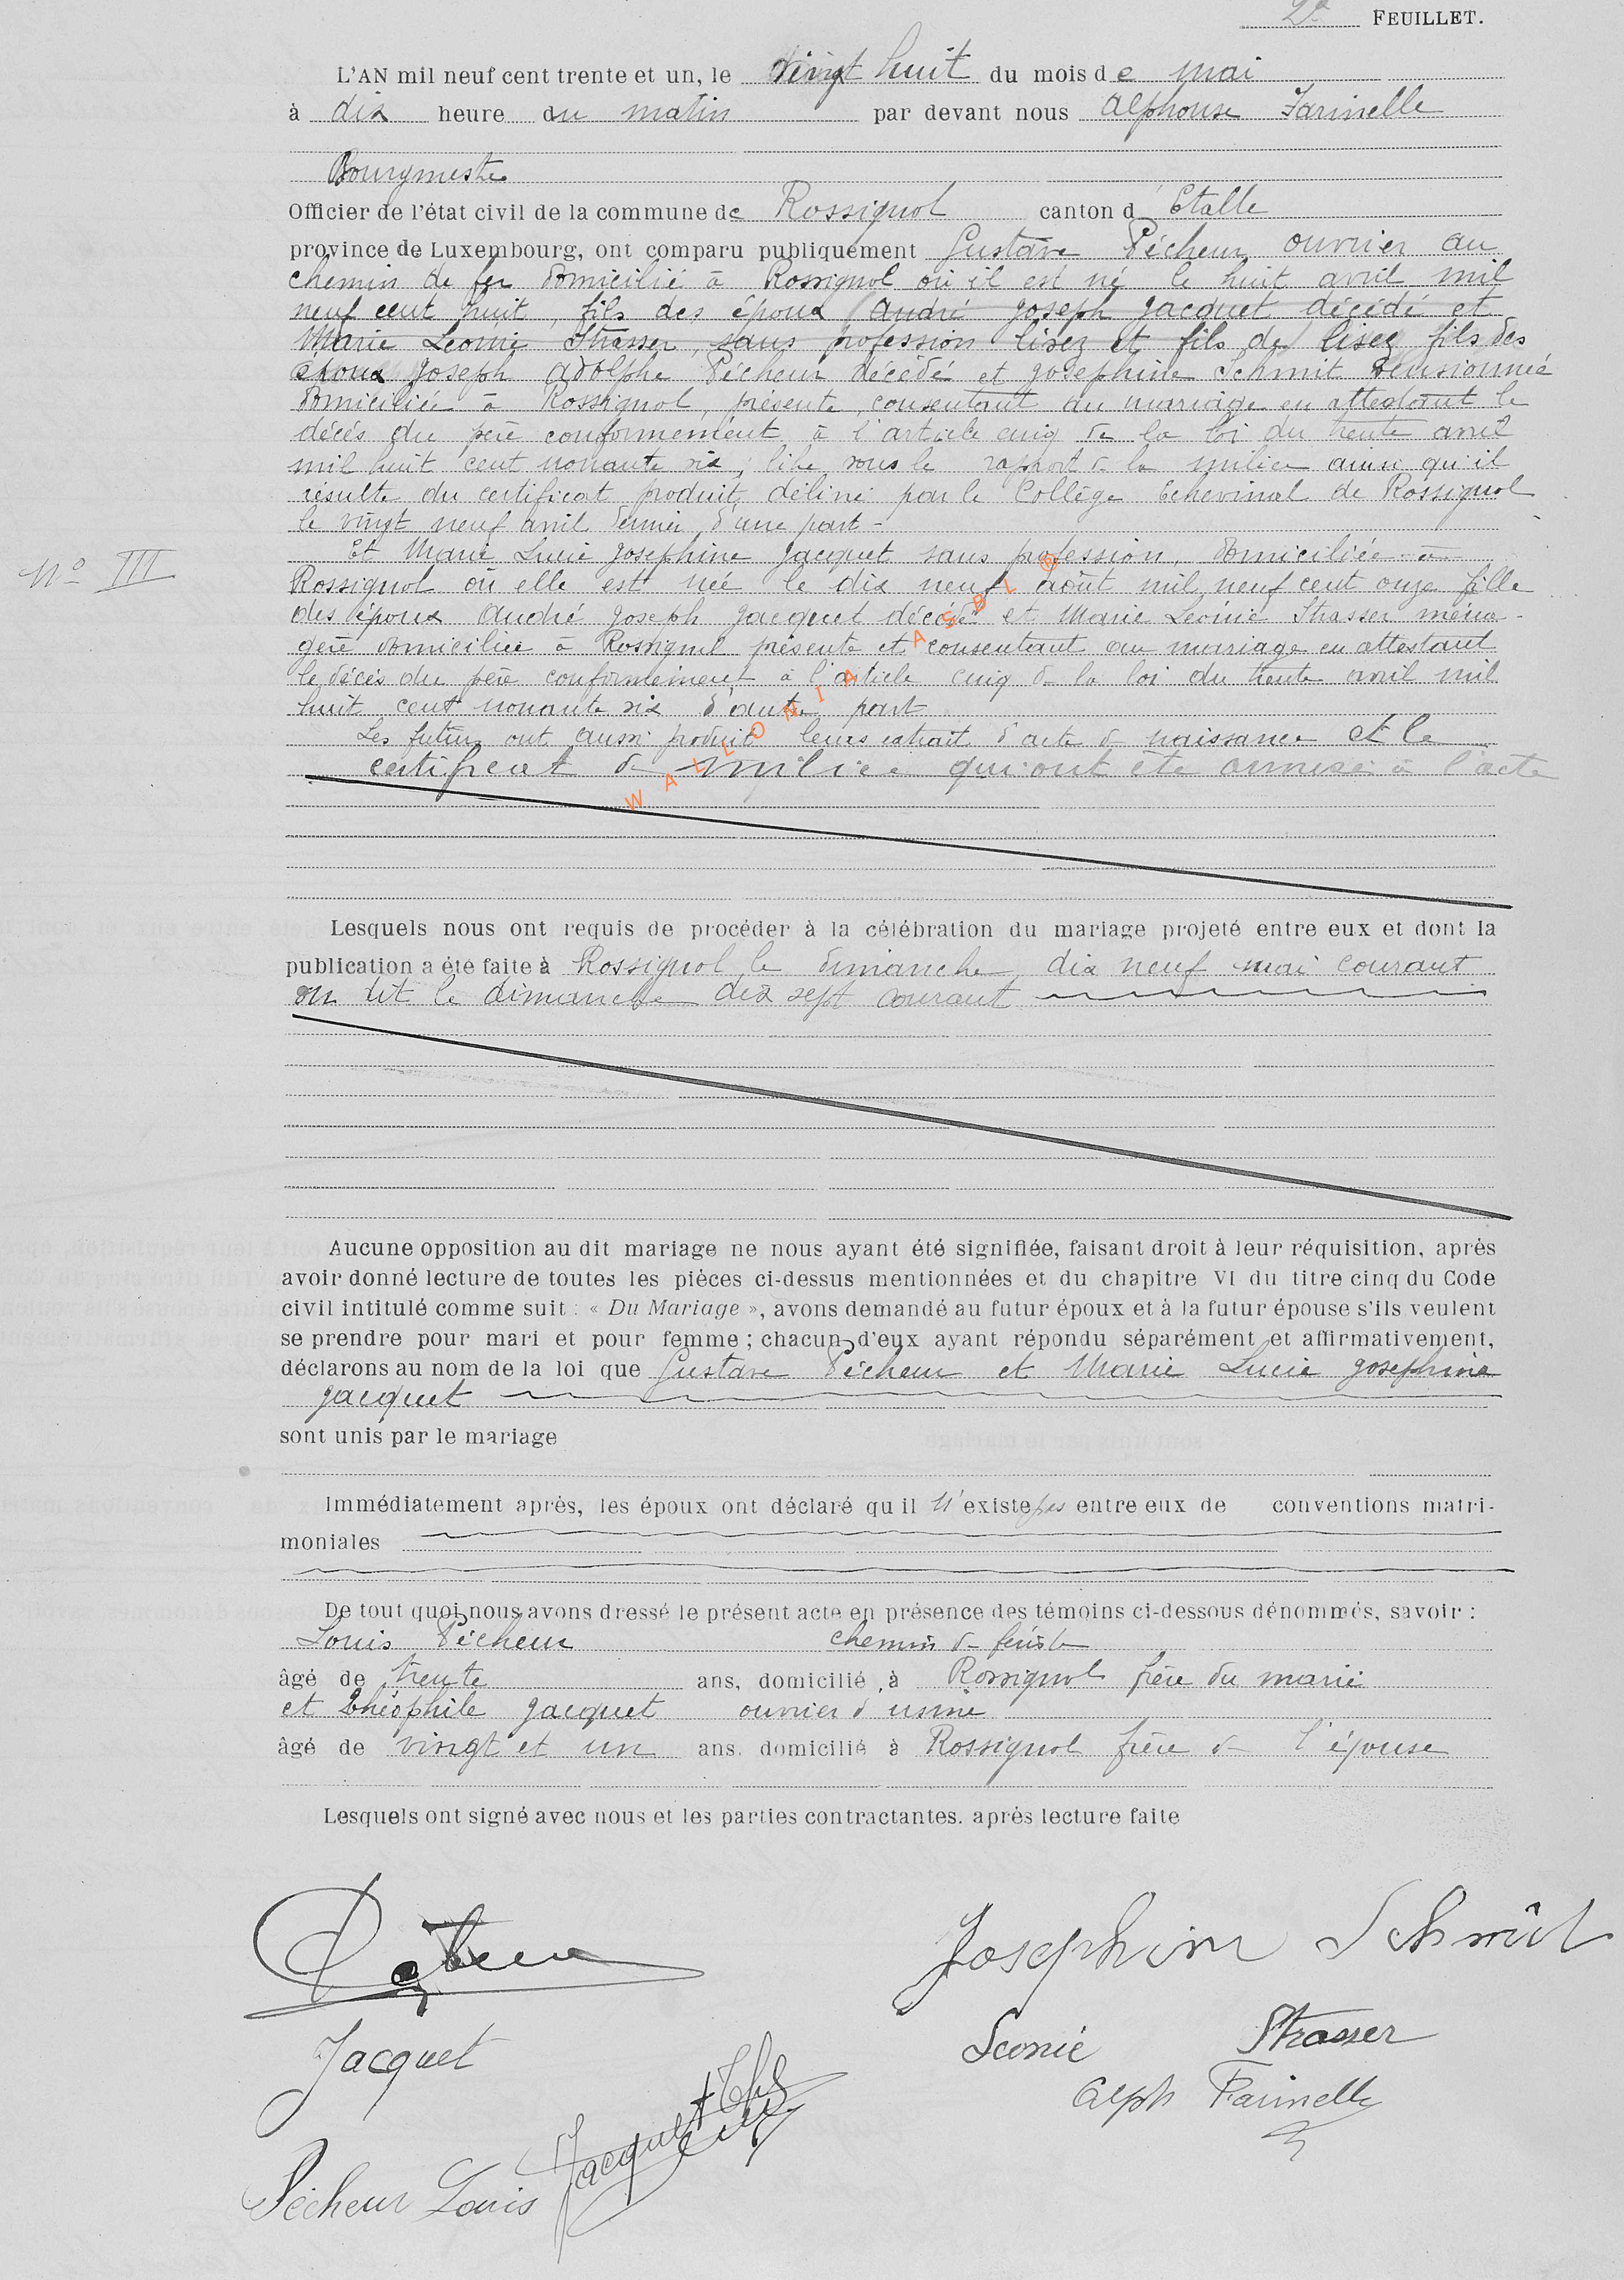 2e FEUILLET.
L'AN mil neuf cent trente et un, le vingt huit du mois de mai
à dix heure du matin par devant nous Alphonse Farinelle
Bourgmestre
Officier de l'état civil de la commune de Rossignol canton d'Etalle
province de Luxembourg, ont comparu publiquement Gustave Pécheur ouvrier au
chemin de fer domicilié à Rossignol où il est né le huit avril mil
neuf cent huit, fils des époux André Joseph Jacquet décédé et
Marie Léonie Strasser, sans profession lisez et fils de lisez fils des
époux Joseph Adolphe Pécheur décédé et Joséphine Schmit pensionnée
domiciliée à Rossignol, présente, consentant au mariage en attestant le
décès du père conformément à l'article cinq de la loi du trente avril
mil huit cent nonante six, libre sous le rapport de la milice ainsi qu'il
résulte du certificat produit délivré par le Collège Echevinal de Rossignol
le vingt neuf avril dernier, d'une part -
N° III
Et Marie Lucie Joséphine Jacquet sans profession, domiciliée à
Rossignol où elle est née le dix neuf août mil neuf cent onze fille
des époux André Joseph Jacquet décédé et Marie Léonie Strasser ména-
gère domiciliée à Rossignol présente et consentant au mariage en attestant
le décès du père conformément à l'article cinq de la loi du trente avril mil
huit cent nonante six d'autre part
Les futurs ont aussi produit leurs extrait d'acte de naissance et le
certificat de milice qui ont été annexé à l'acte
WALLONIA ASBL ®
Lesquels nous ont requis de procéder à la célébration du mariage projeté entre eux et dont la
publication a été faite à Rossignol le dimanche dix neuf mai courant
on dit le dimanche dix sept courant
Aucune opposition au dit mariage ne nous ayant été signifiée, faisant droit à leur réquisition, après
avoir donné lecture de toutes les pièces ci-dessus mentionnées et du chapitre VI du titre cinq du Code
civil intitulé comme suit : « Du Mariage », avons demandé au futur époux et à la futur épouse s'ils veulent
se prendre pour mari et pour femme ; chacun d'eux ayant répondu séparément et affirmativement,
déclarons au nom de la loi que Gustave Pécheur et Marie Lucie Joséphine
Jacquet
sont unis par le mariage
Immédiatement après, les époux ont déclaré qu'il n'existe pas entre eux de conventions matri-
moniales
De tout quoi nous avons dressé le présent acte en présence des témoins ci-dessous dénommés, savoir :
Louis Pécheur chemin de fériste
âgé de trente ans, domicilié à Rossignol frère du marié
et Théophile Jacquet ouvrier d'usine
âgé de vingt et un ans, domicilié à Rossignol frère de l'épouse
Lesquels ont signé avec nous et les parties contractantes, après lecture faite
Josephine Schmit
Jacquet
Léonie Strasser
Alph Farinelle
Jacquet Thé
Pécheur Louis